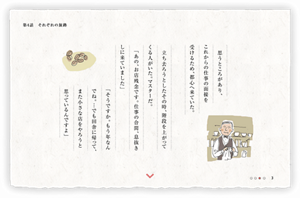 第4話 それぞれの旅路
思うところがあり、
これからの仕事の面接を
受けるため、都心へ来ていた。
立ち去ろうとしたその時、階段を上がって
くる人がいた。マスターだ。
「あの、お店残念です。仕事の合間、息抜き
しに来ていました」
「そうですか。もう年なん
でね…。でも田舎に帰って、
また小さな店をやろうと
思っているんですよ」
3